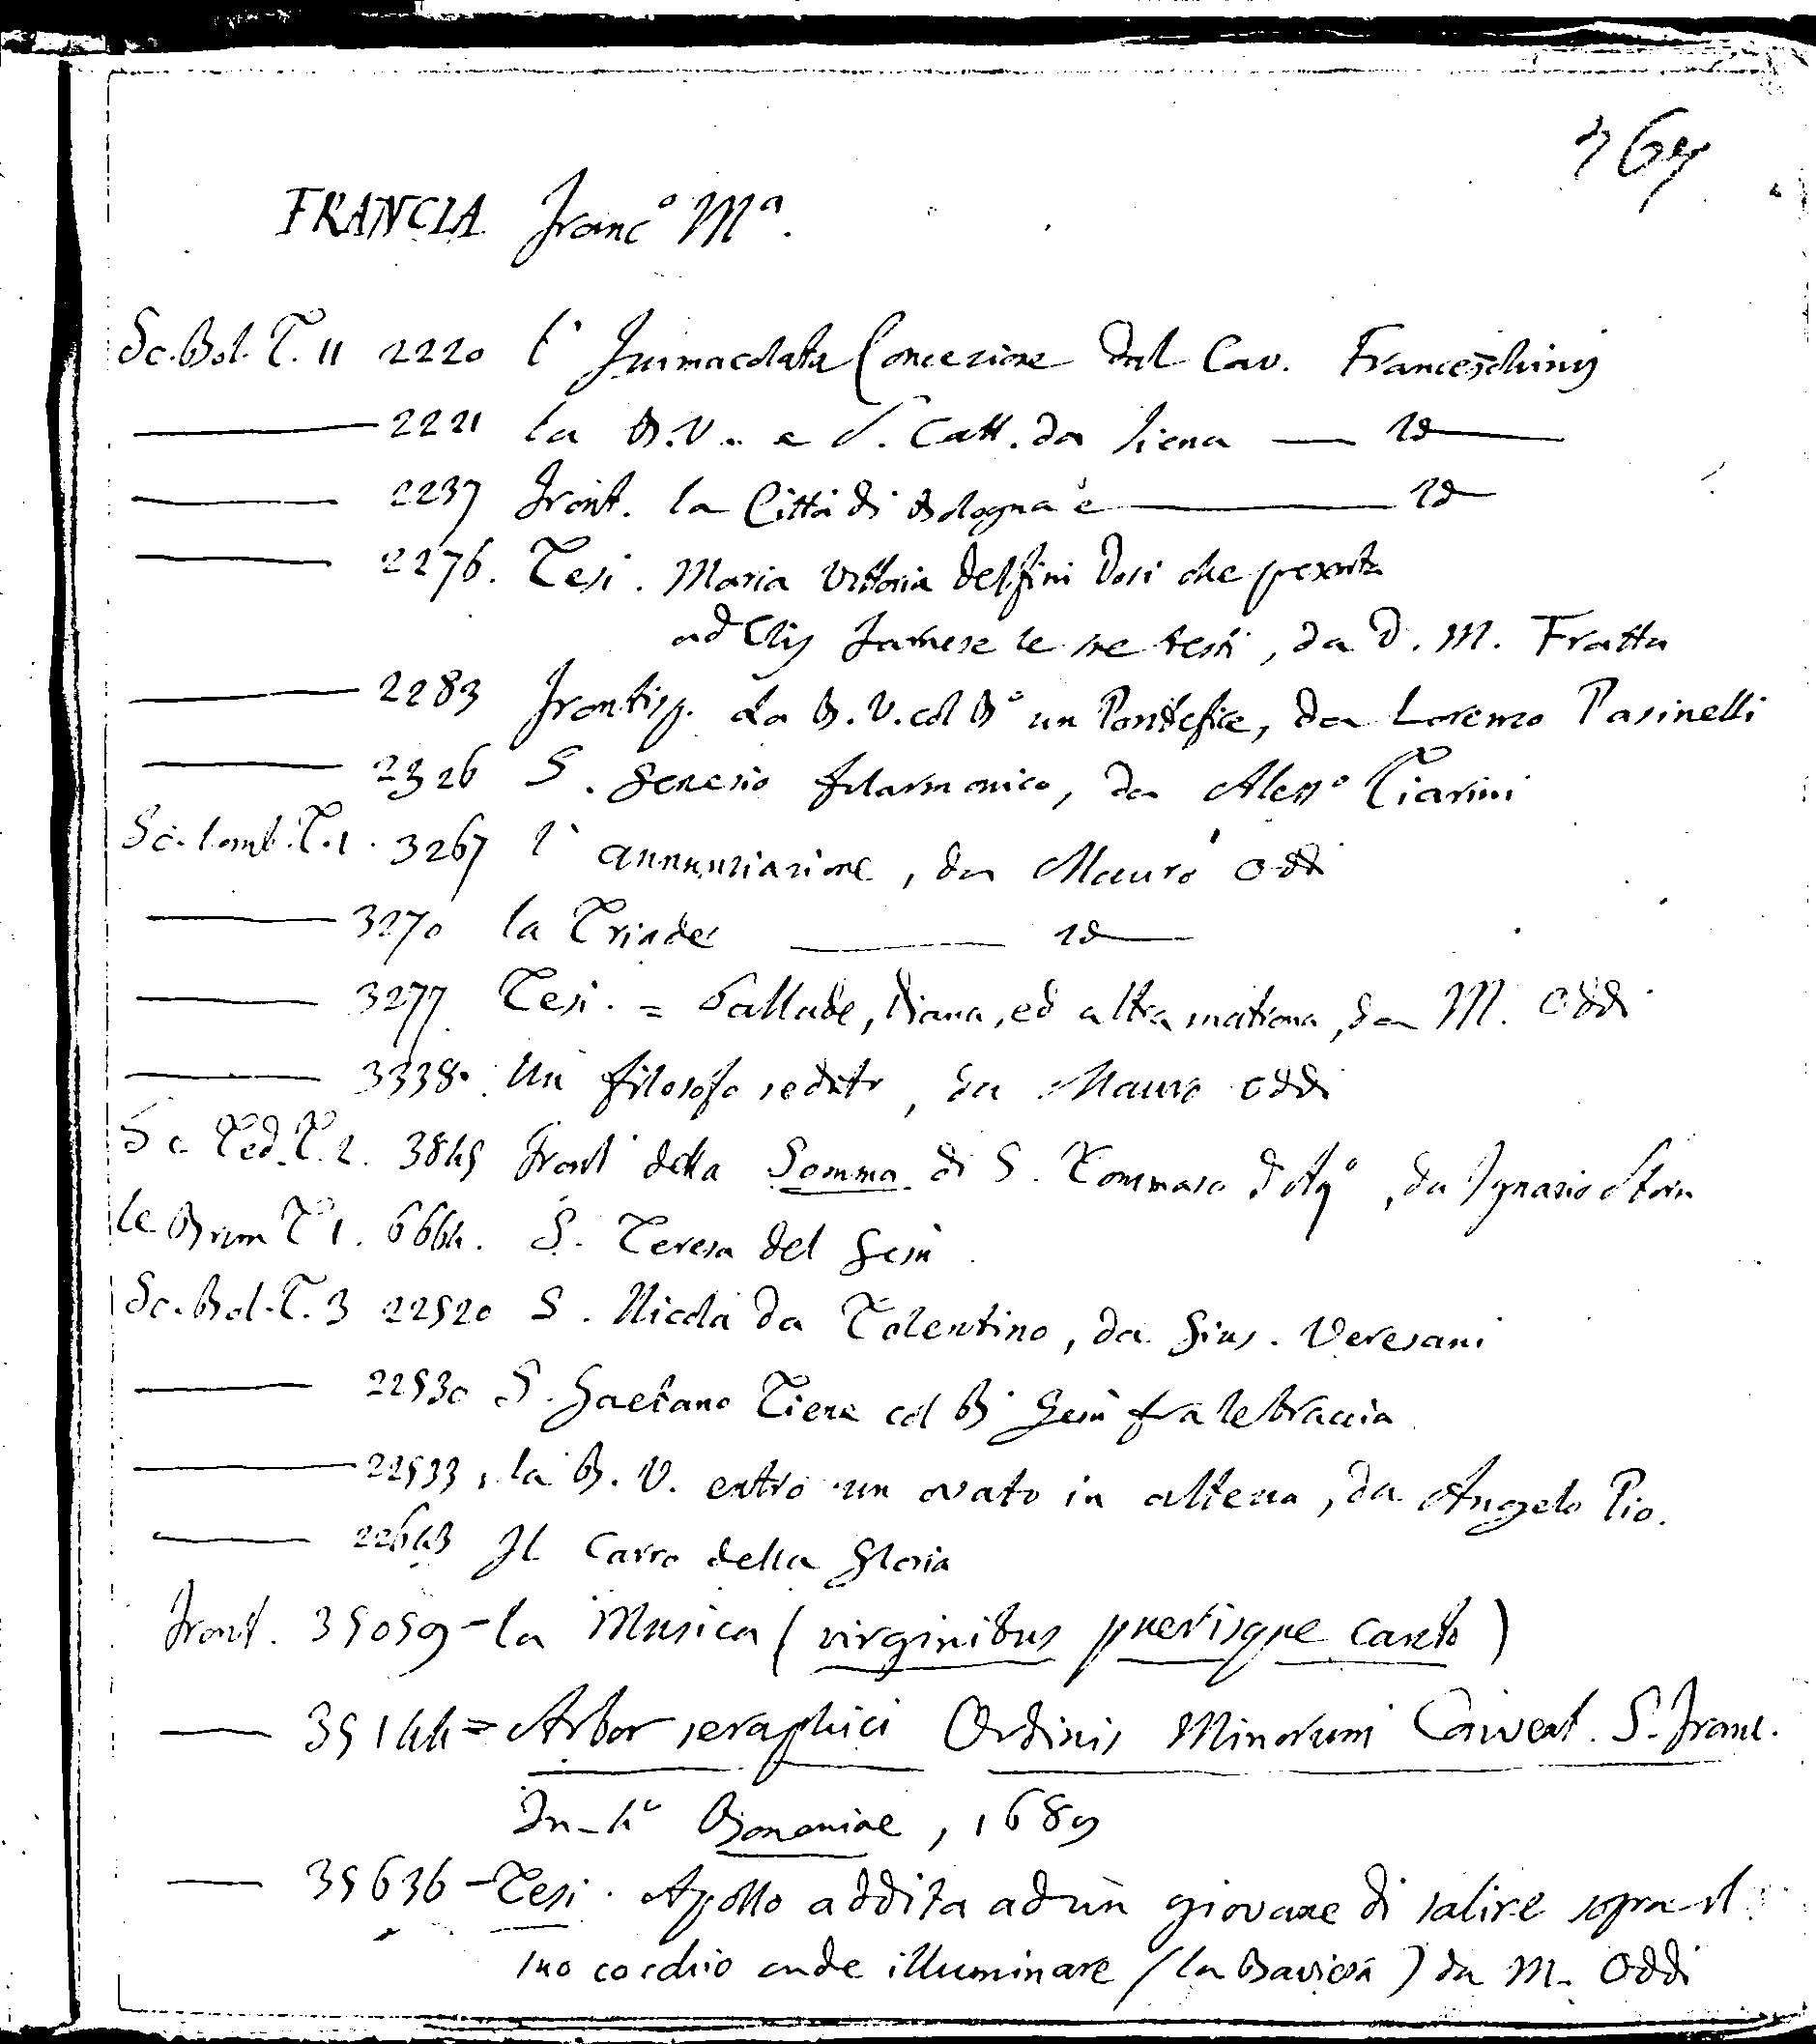 767
FRANCIA Franc.º Mª.
Sc. Bol. T. 11 2220 l' Immacolata Concezione dal Cav. Franceschinj
2221 la B.V. e S. Catt. da Siena — id
2237 Front. la Città di Bologna e — id
2276. Tesi. Maria Vittoria Delfini Dosi che presenta
ad Elis Farnese le sue tesi, da D. M. Fratta
2283 Frontisp. La B.V. col Bº un Pontefice, da Lorenzo Pasinelli
2326 S. Genesio filarmonico, da Aless.º Tiarini
Sc. Lomb. T. 1. 3267 l' annunziazione, da Mauro Oddi
3270 la Triade — id
3277. Tesi. = Pallade, Diana, ed altra matrona, da M. Oddi
3338. Un filosofo seduto, da Mauro Oddi
Sc Ted. T. 2. 3845 Front della Somma di S. Tommaso d'Aqº, da Ignazio Stern
le Brun T 1. 6664. S. Teresa del Gesù
Sc. Bol. T. 3 22520 S. Nicola da Tolentino, da Gius. Veresani
22530 S. Gaetano Tiene col B. Gesù fra le braccia
22533, la B. V. entro un ovato in altezza, da Angelo Pio.
22643 Il Carro della Gloria
Front. 35059 - la Musica (virginibus puerisque canto)
35144 = Arbor seraphici Ordinis Minorum Convent. S. Franc.
In-4º Bononiae, 1689
35636 - Tesi. Apollo addita ad un giovane di salire sopra il
suo cocchio onde illuminare (la Baviera) da M. Oddi